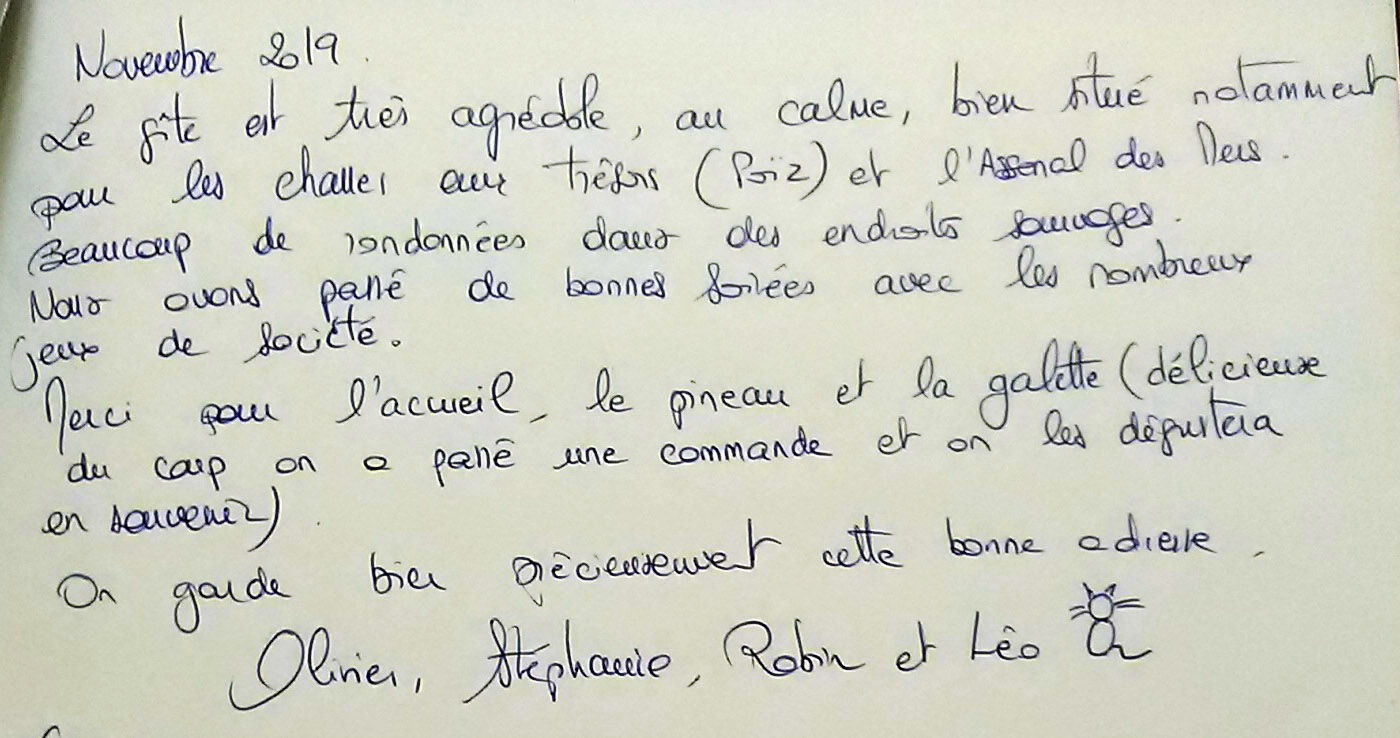 Novembre 2019.
Le gîte est très agréable, au calme, bien situé notamment
pour les chasses aux trésors (Poïz) et l'Arsenal des Mers.
Beaucoup de randonnées dans des endroits sauvages.
Nous avons passé de bonnes soirées avec les nombreux
jeux de société.
Merci pour l'accueil, le pineau et la galette (délicieuse
du coup on a passé une commande et on les dégustera
en souvenir).
On garde bien précieusement cette bonne adresse.
Olivier, Stéphanie, Robin et Léo